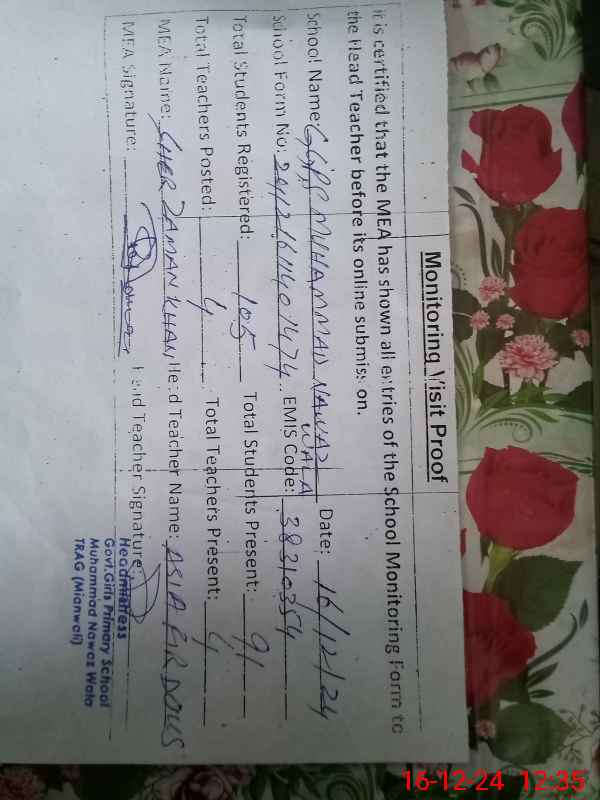 Monitoring Visit Proof
it is certified that the MEA has shown all entries of the School Monitoring Form to
the Head Teacher before its online submission.
School Name: GGPS MUHAMMAD NAWAZ WALA Date: 16/12/24
School Form No: EMIS Code: 38310354
Total Students Registered: 105 Total Students Present: 91
Total Teachers Posted: 4 Total Teachers Present: 4
MEA Name: SHER ZAMAN KHAN Head Teacher Name: ASIA FIRDOUS
MEA Signature: Head Teacher Signature:
Headmistress
Govt.Girls Primary School
Muhammad Nawaz Wala
TRAG (Mianwali)
16-12-24 12:35